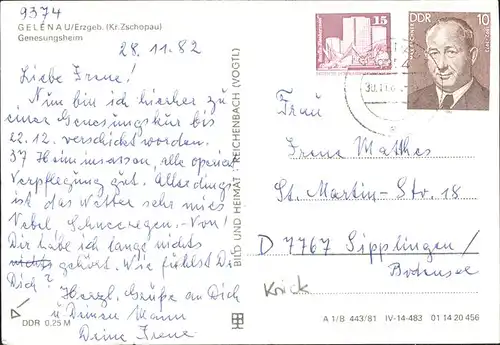 9374
GELENAU/Erzgeb. (Kr. Zschopau)
Genesungsheim
28.11.82
Liebe Irene!
Nun bin ich hierher zu
einer Genesungskur bis
22.12. verschickt worden.
37 Heiminsassen, alle
Verpflegung gut. Allerdings
ist das Wetter sehr mies
Nebel, Schneeregen. - Von
Dir habe ich lange nichts
gehört. Wie fühlst Du
Dich? Herzl. Grüße an Dich
u. Deinen Mann
Deine Irene
DDR 0,25 M
BILD UND HEIMAT REICHENBACH (VOGTL)
15
DDR 10
Frau
Irene Matthes
St. Martin-Str. 18
D 7767 Sipplingen/
Bodensee
A 1/B 443/81 IV-14-483 01 14 20 456